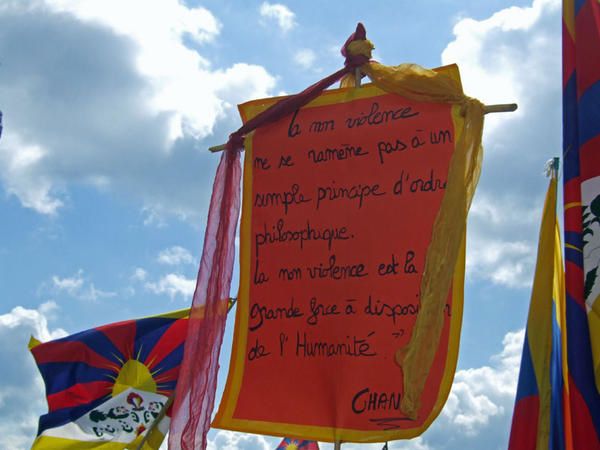 la non violence
ne se ramène pas à un
simple principe d'ordre
philosophique.
la non violence est la
grande force à disposition
de l'Humanité. "
CHAN